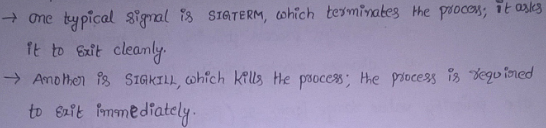 → One typical signal is SIGTERM, which terminates the process; it asks
it to exit cleanly.
→ Another is SIGKILL, which kills the process; the process is required
to exit immediately.